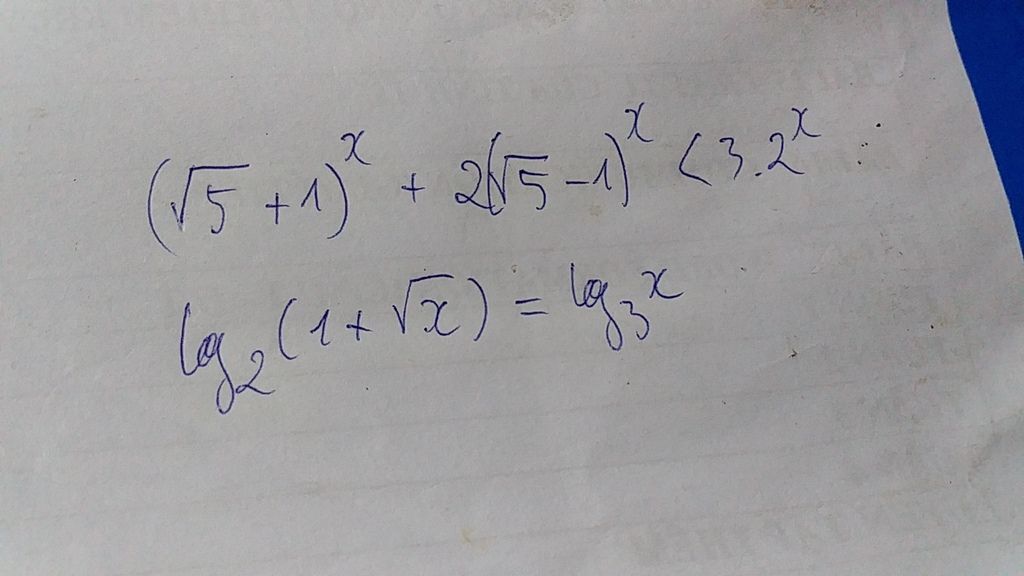 (√5 + 1)^x + 2(√5 - 1)^x < 3.2^x
log_2 (1 + √x) = log_3 x